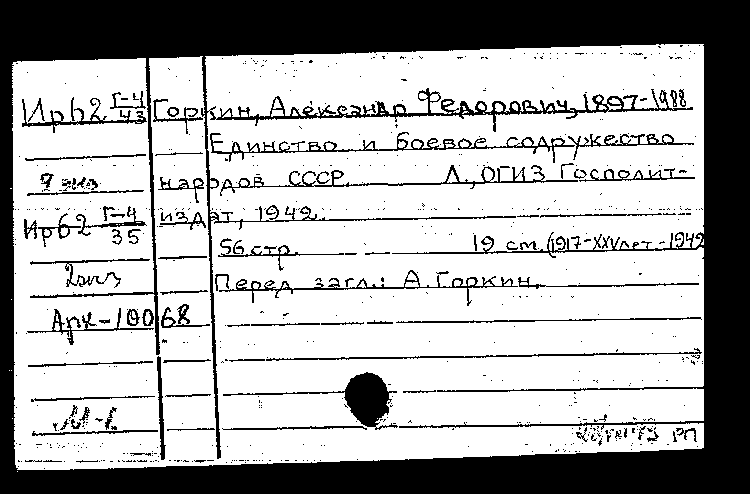 Ир62 Г-4/43 Горкин, Александр Федорович, 1897-1988
Единство и боевое содружество
7 экз народов СССР. Л., ОГИЗ Госполит-
Ир62 Г-4/35 издат, 1942.
56 стр. 19 см. (1917-XXV лет-1942
2 экз Перед загл.: А. Горкин.
Арк-10068
М-
РП